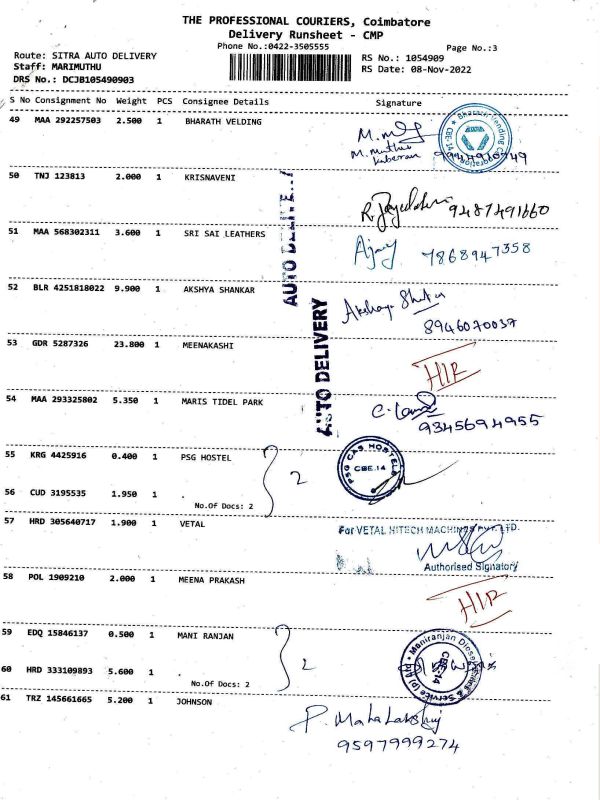 THE PROFESSIONAL COURIERS, Coimbatore
Delivery Runsheet - CMP
Phone No.:0422-3505555
Page No.:3
Route: SITRA AUTO DELIVERY
RS No.: 1054909
Staff: MARIMUTHU
RS Date: 08-Nov-2022
DRS No.: DCJB105490903
S No Consignment No Weight PCS Consignee Details Signature
49 MAA 292257503 2.500 1 BHARATH VELDING
M. Muthu
50 TNJ 123813 2.000 1 KRISNAVENI
9487491660
51 MAA 568302311 3.600 1 SRI SAI LEATHERS
Ajay 7868947358
52 BLR 4251818022 9.900 1 AKSHYA SHANKAR
8946070037
53 GDR 5287326 23.800 1 MEENAKASHI
HIR
54 MAA 293325802 5.350 1 MARIS TIDEL PARK
9345694955
AUTO DELIVERY
55 KRG 4425916 0.400 1 PSG HOSTEL
2
PSG CAS HOSTELS
CBE.14
56 CUD 3195535 1.950 1 .
No.Of Docs: 2
57 HRD 305640717 1.900 1 VETAL
For VETAL HITECH MACHINES PVT. LTD.
Authorised Signatory
58 POL 1909210 2.000 1 MEENA PRAKASH
HIR
59 EDQ 15846137 0.500 1 MANI RANJAN
2
60 HRD 333109893 5.600 1 .
No.Of Docs: 2
61 TRZ 145661665 5.200 1 JOHNSON
P. Mahalakshmi
9597999274